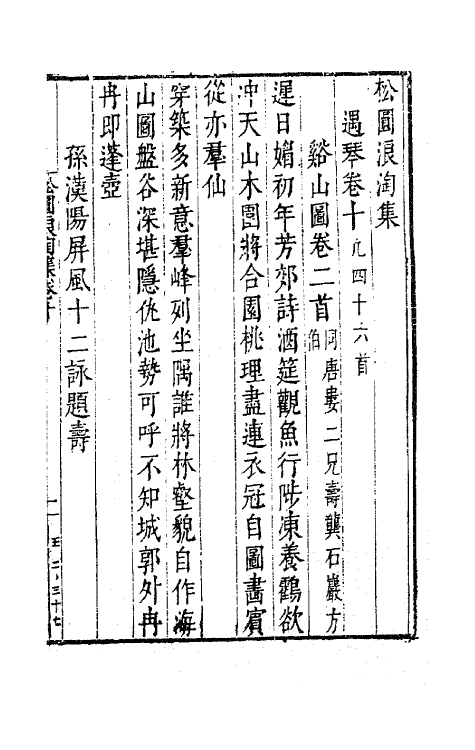 松圓浪淘集
遇琴卷十 凡四十六首
谿山圖卷二首 同唐婁二兄壽龔石巖方伯
遲日媚初年芳郊詩酒筵觀魚行陟凍養鶴欲
冲天山木圍將合園桃理盡連衣冠自圖畵賔
從亦羣仙
穿築多新意羣峰列坐隅誰將林壑貌自作海
山圖盤谷深堪隱佹池勢可呼不知城郭外冉
冉即蓬壺
孫漢陽屏風十二詠題壽
松圓浪淘集卷十
一